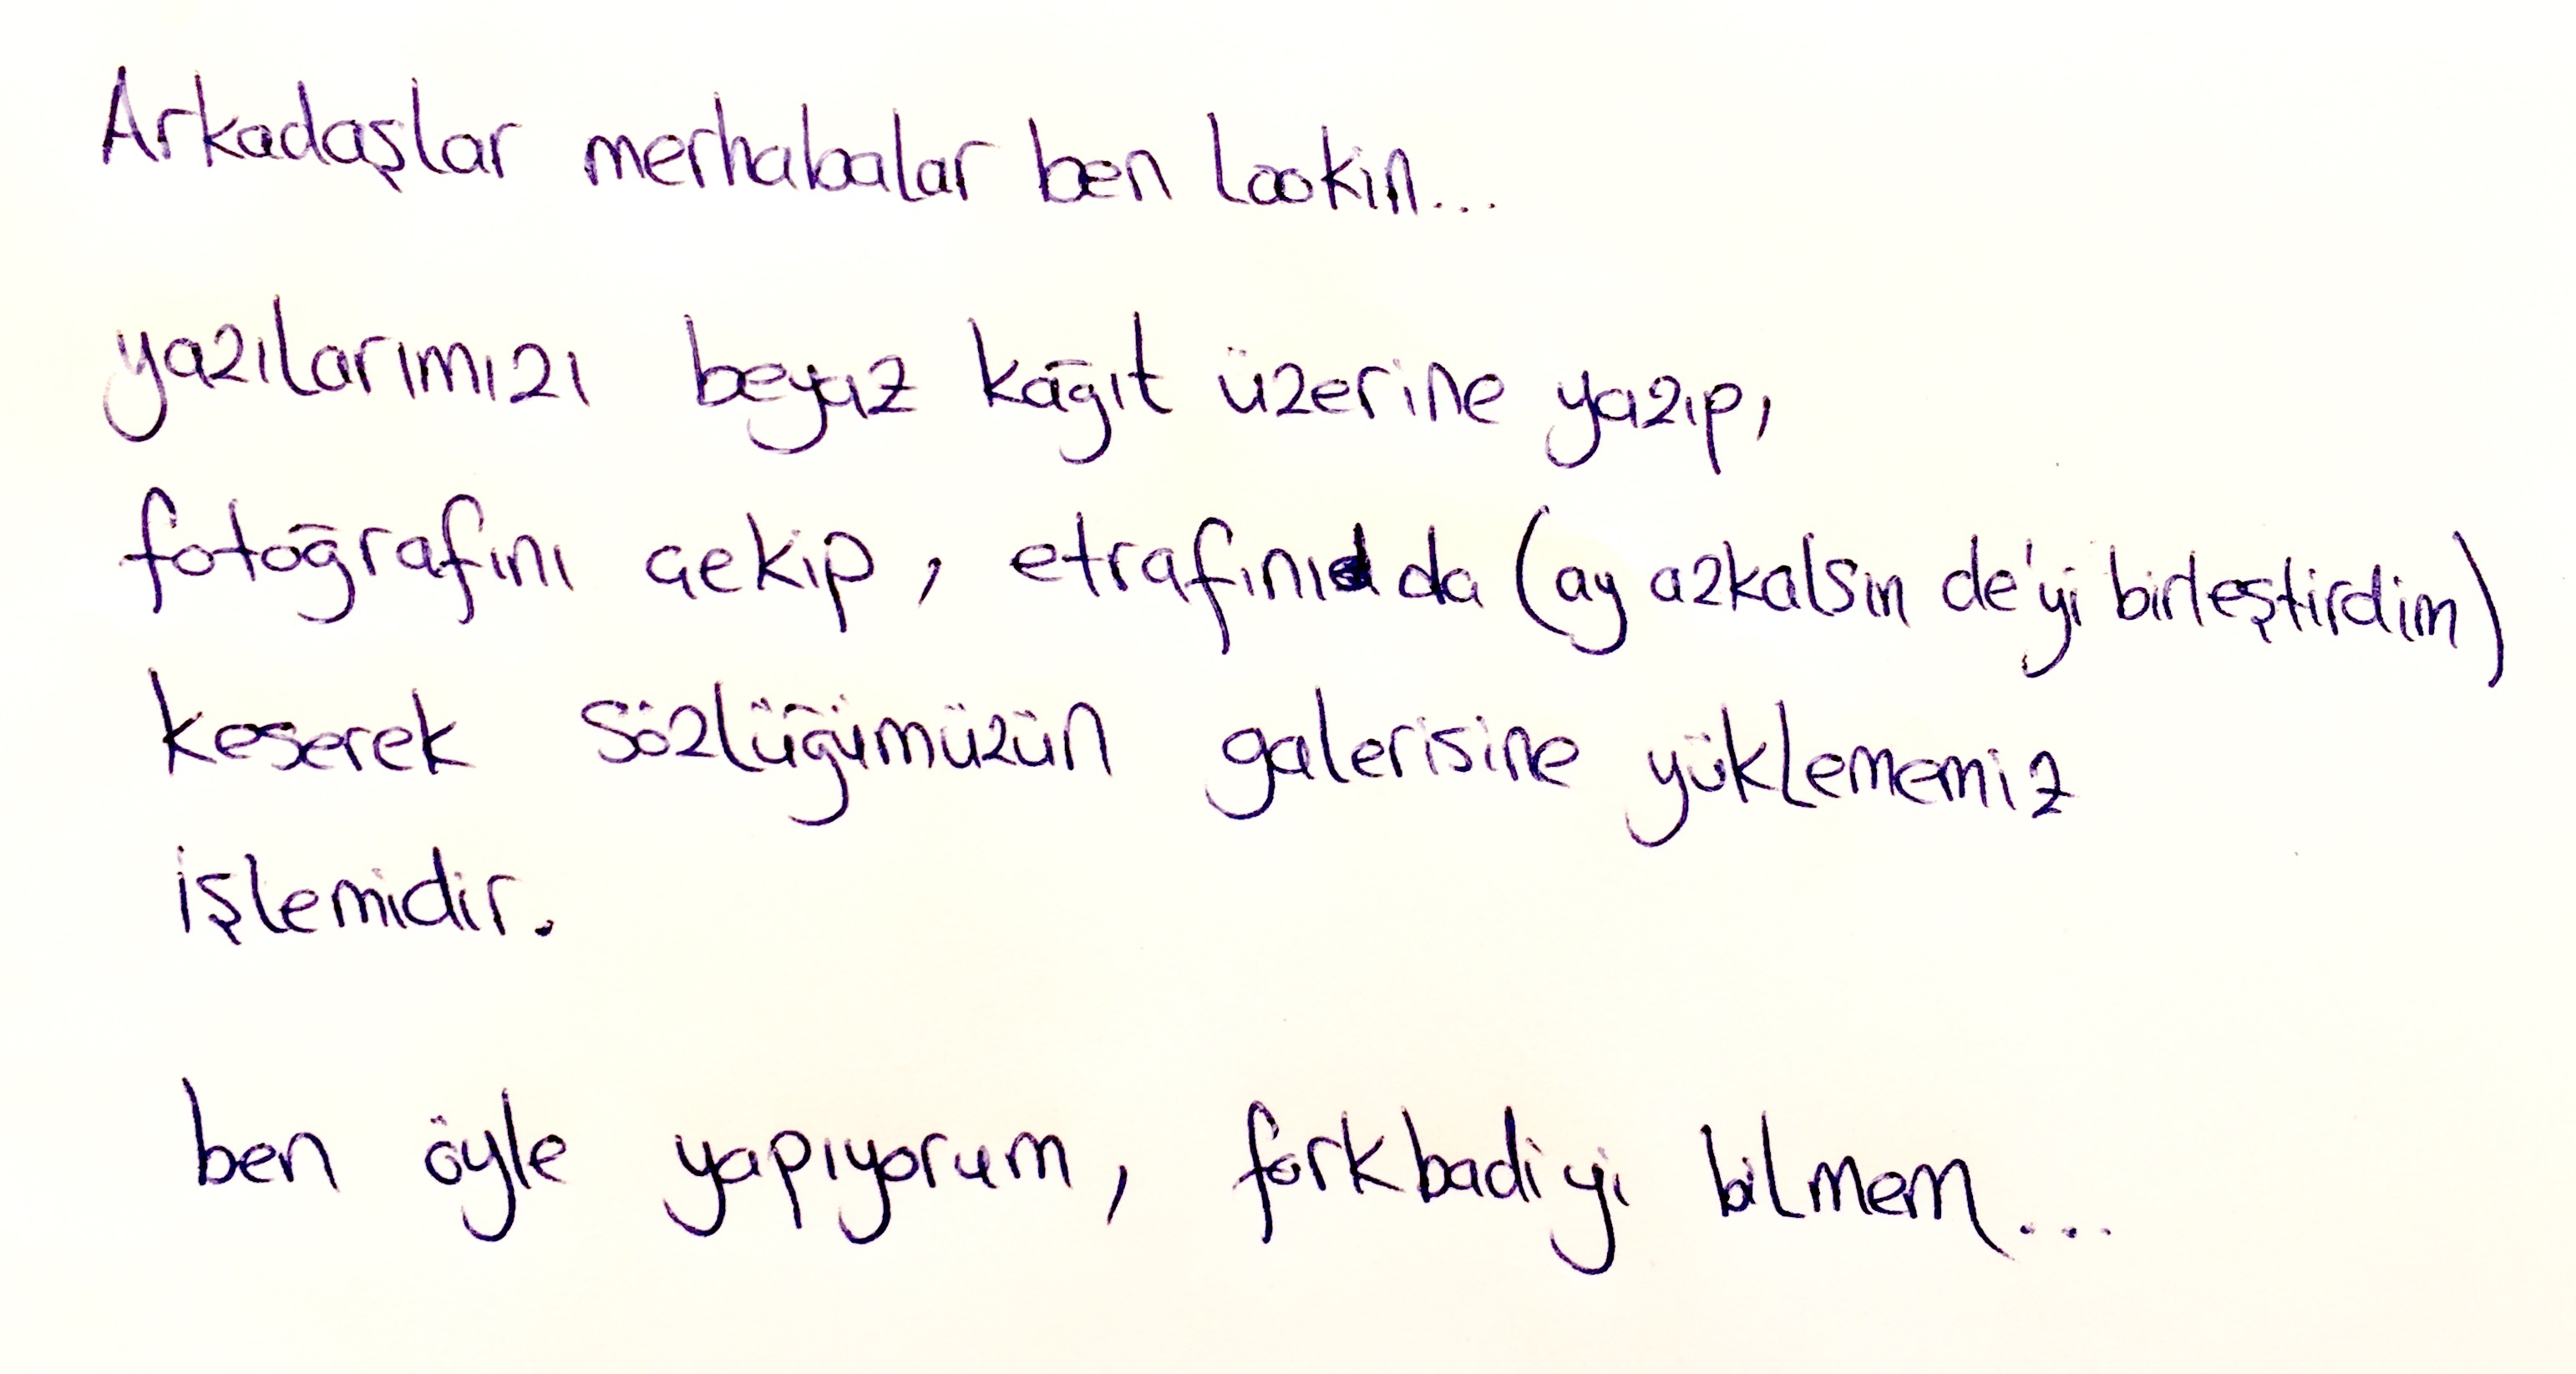 Arkadaşlar merhabalar ben Lookin...
yazılarımızı beyaz kağıt üzerine yazıp,
fotoğrafını çekip, etrafını da (ay azkalsın de'yi birleştirdim)
keserek sözlüğümüzün galerisine yüklememiz
işlemidir.
ben öyle yapıyorum, forkbadiyi bilmem...